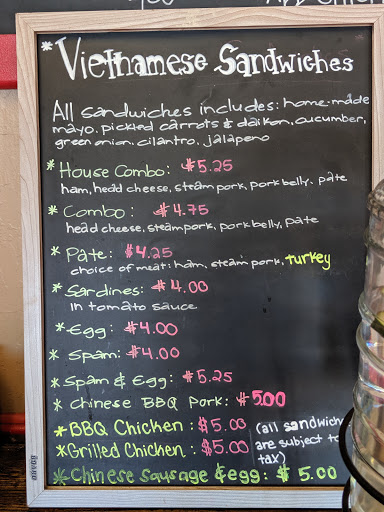 * Vietnamese Sandwiches
All sandwiches includes: home-made
mayo, pickled carrots & daikon, cucumber,
green onion, cilantro, jalapeño
* House Combo: $5.25
ham, head cheese, steam pork, pork belly, pâte
* Combo: $4.75
head cheese, steam pork, pork belly, pâte
* Pate: $4.25
choice of meat: ham, steam pork, turkey
* Sardines: $4.00
in tomato sauce
* Egg: $4.00
* Spam: $4.00
* Spam & Egg: $5.25
* Chinese BBQ Pork: $5.00
* BBQ Chicken: $5.00 (all sandwich
* Grilled Chicken: $5.00 are subject to
tax)
* Chinese Sausage & egg: $5.00